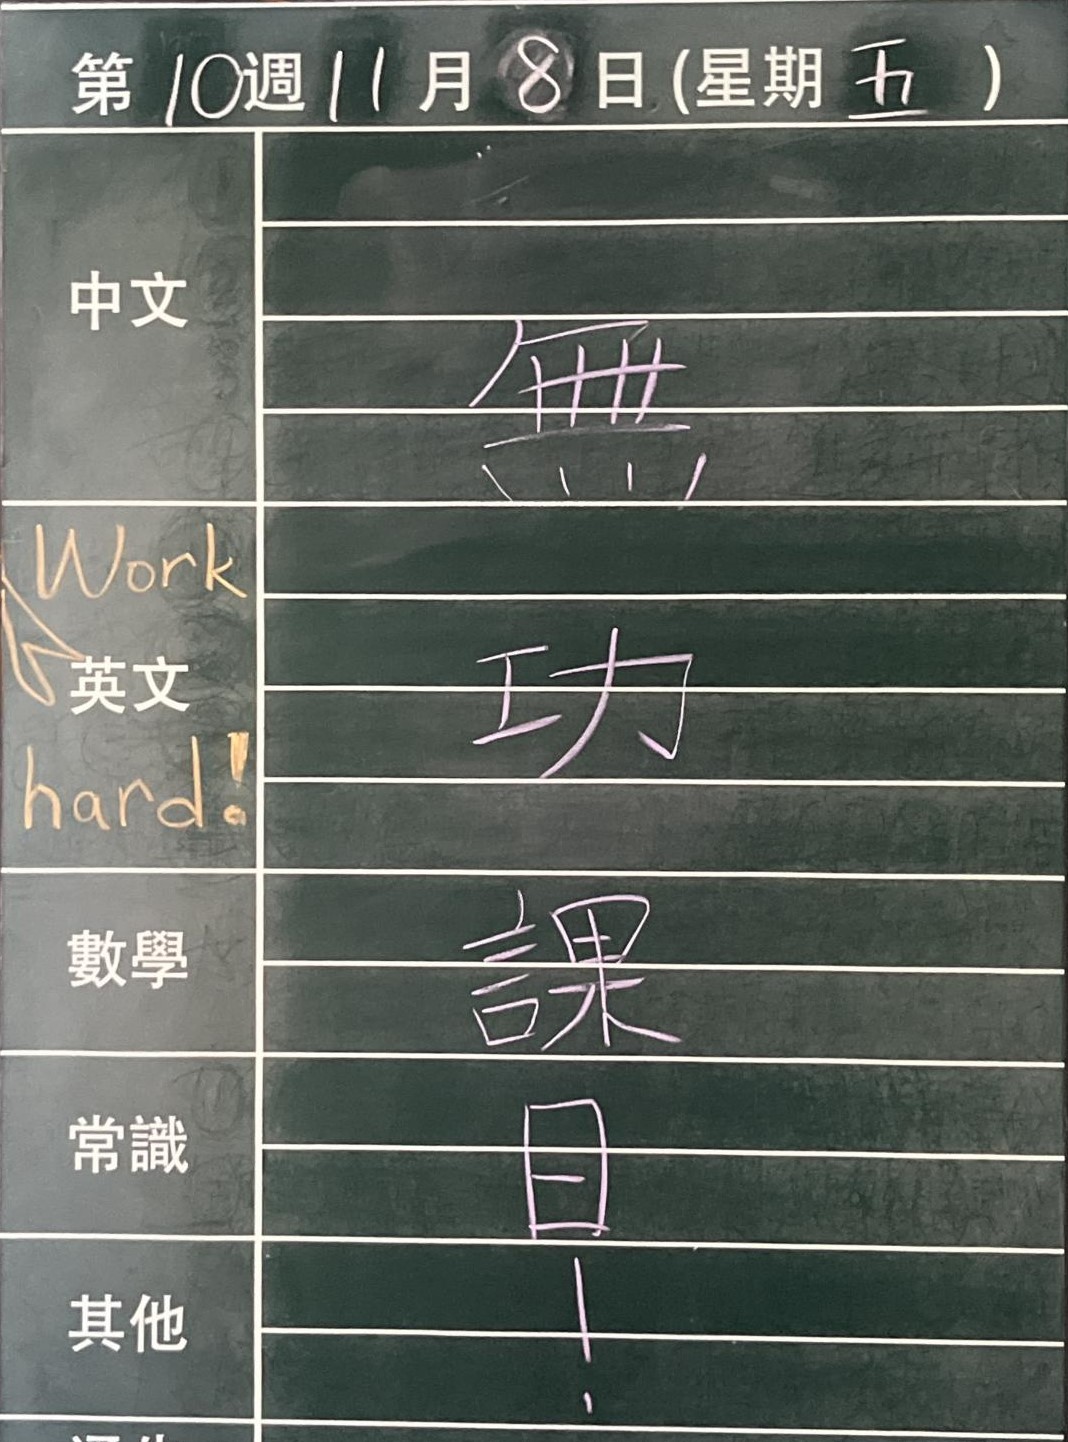 第10週11月8日(星期五)
中文
無
Work
英文
功
hard!
數學
課
常識
日
其他
!